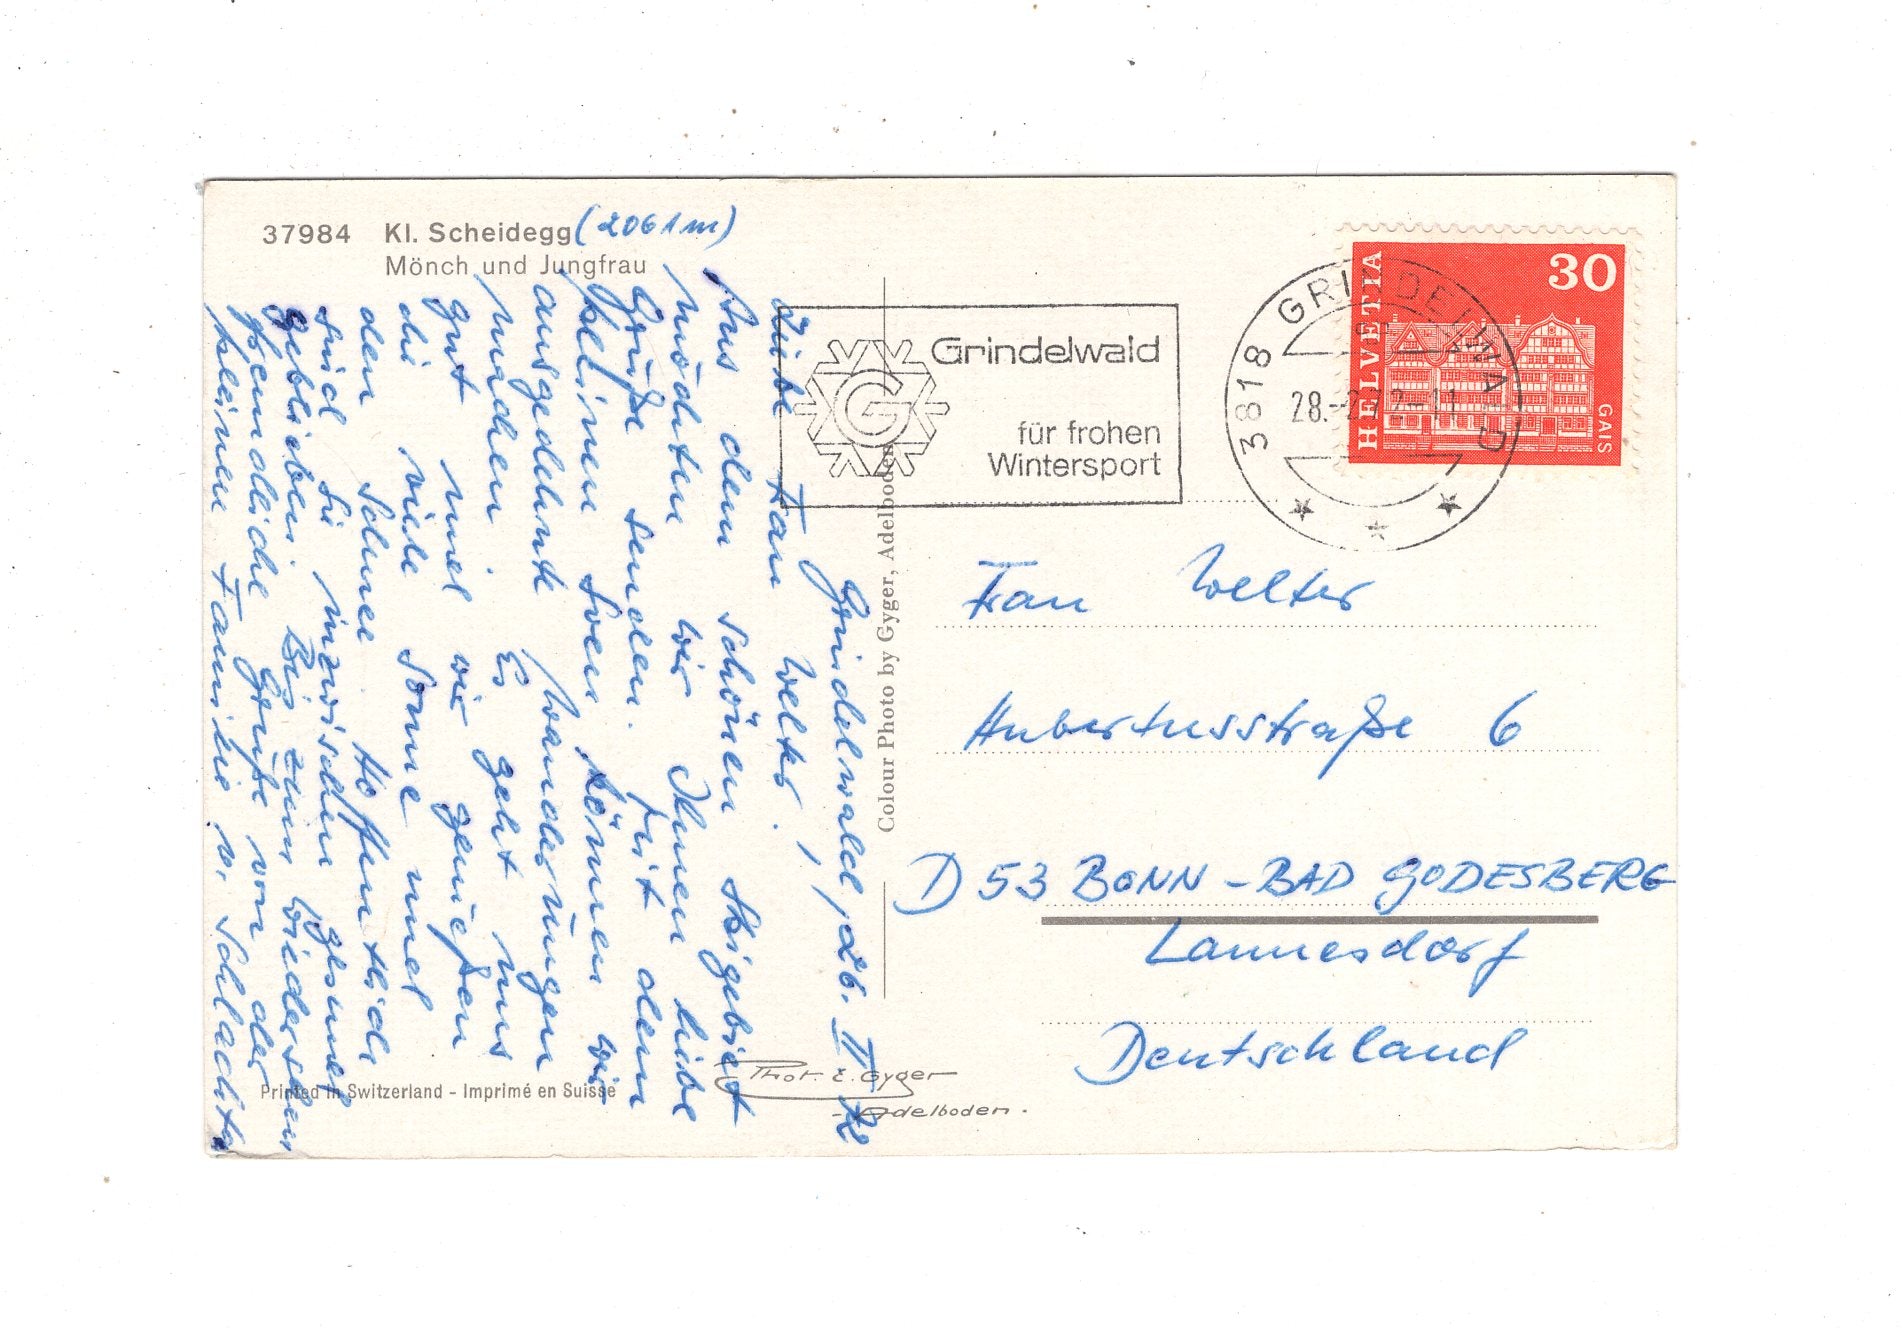 37984 Kl. Scheidegg (2061m)
Mönch und Jungfrau
Grindelwald, 26. II. 72
Liebe Frau Welter!
Aus dem schönen Skigebiet
möchten wir Ihnen liebe
Grüße senden. Mit dem
kleinen Sven können wir
ausgedehnte Wanderungen
machen. Es geht uns
gut und wir genießen
die viele Sonne und
den Schnee. Hoffentlich
sind Sie inzwischen gesund
geblieben. Bis zum Wiedersehen
freundliche Grüße von der
kleinen Familie v.
Printed in Switzerland - Imprimé en Suisse
Colour Photo by Gyger, Adelboden
Phot. E. Gyger
Adelboden.
Grindelwald
für frohen
Wintersport
G
3818 GRINDELWALD
28.-2.72-11
HELVETIA
30
GAIS
Frau Welter
Hubertusstraße 6
D 53 BONN - BAD GODESBERG
Lannesdorf
Deutschland